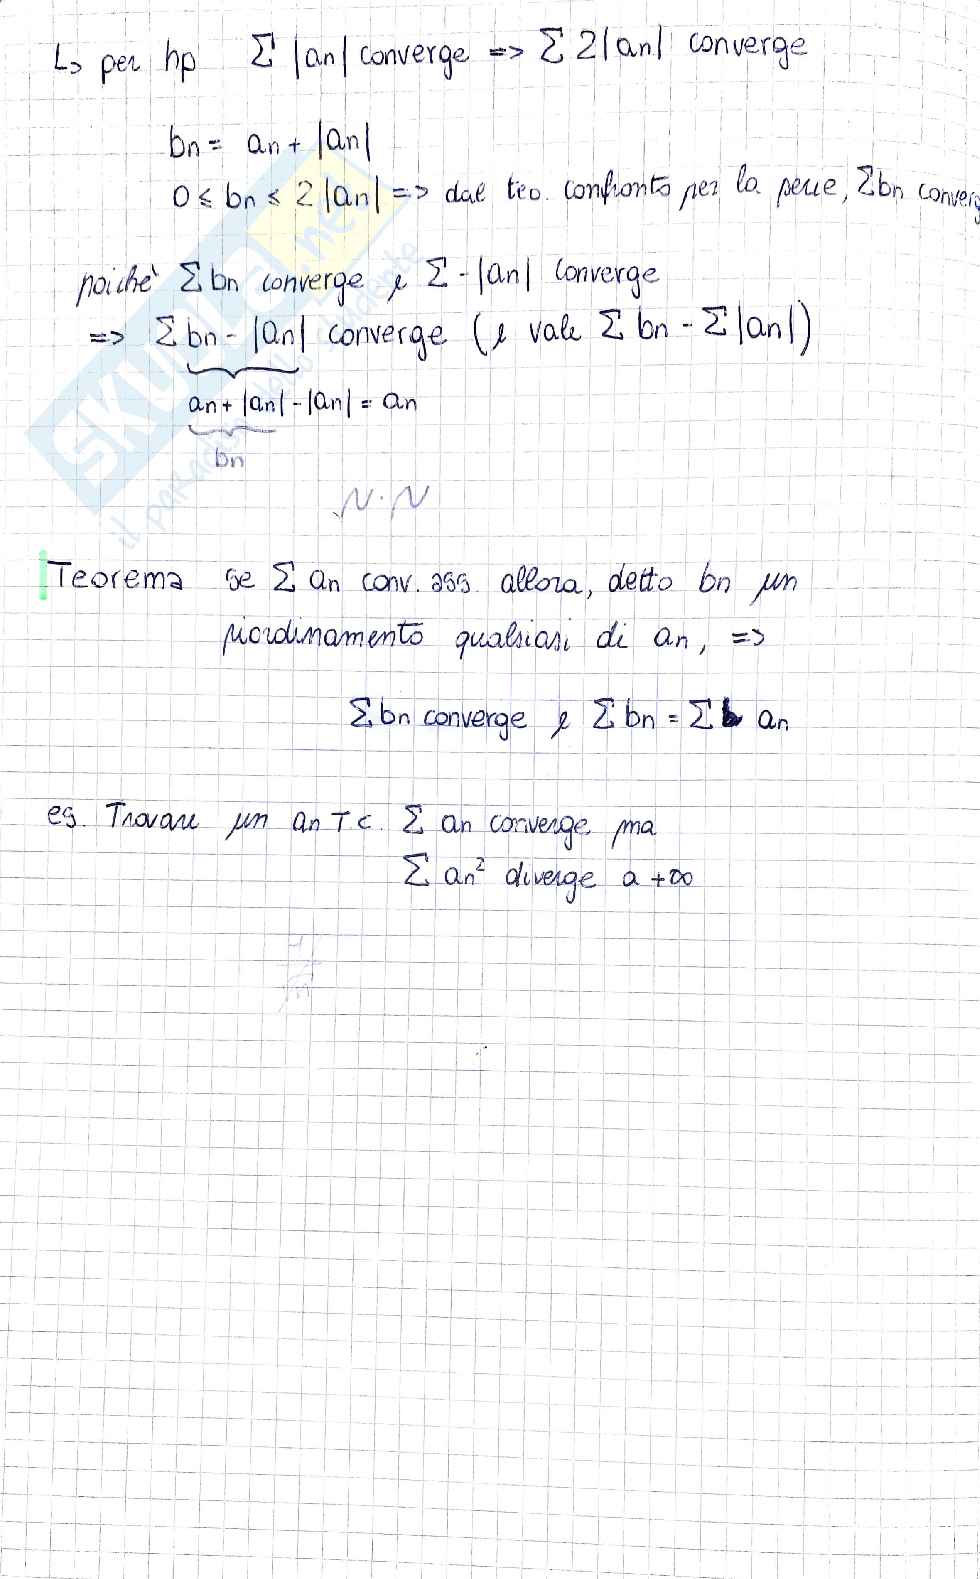 L> per hp Σ |an| converge => Σ 2|an| converge
bn = an + |an|
0 ≤ bn ≤ 2 |an| => dal teo. confronto per la serie, Σbn converg
poiché Σ bn converge e Σ - |an| converge
=> Σ bn - |an| converge (e vale Σ bn - Σ |an|)
an + |an| - |an| = an
bn
Teorema se Σ an conv. ass. allora, detto bn un
riordinamento qualsiasi di an, =>
Σ bn converge e Σ bn = Σ an
es. Trovare un an T c. Σ an converge ma
Σ an² diverge a +∞
SKUOLA.net
il paradiso dello studente